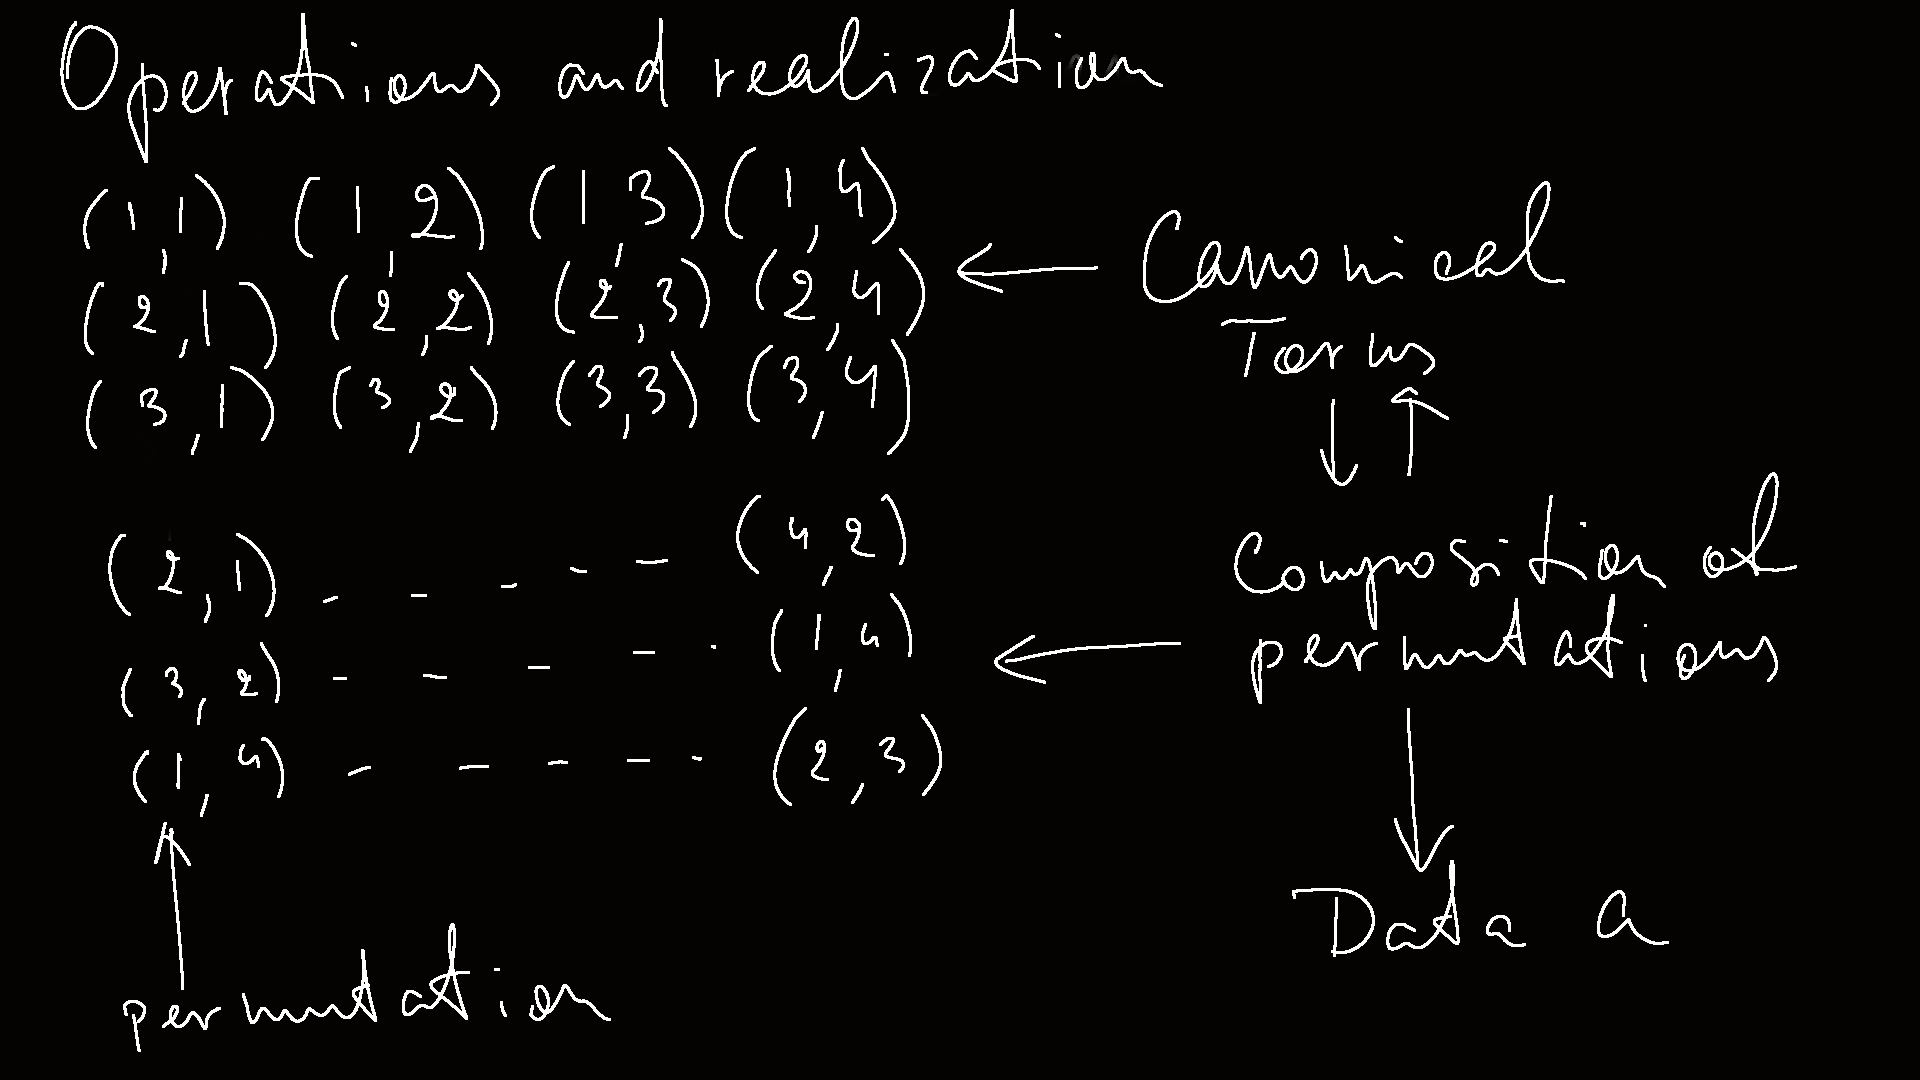 Operations and realization
(1,1) (1,2) (1,3) (1,4)
(2,1) (2,2) (2,3) (2,4)
(3,1) (3,2) (3,3) (3,4)
← Canonical
Torus
↓ ↑
(2,1) - - - - - (4,2)
(3,2) - - - - - (1,4)
(1,4) - - - - - (2,3)
← Composition of
permutations
↓
Data a
↑
permutation